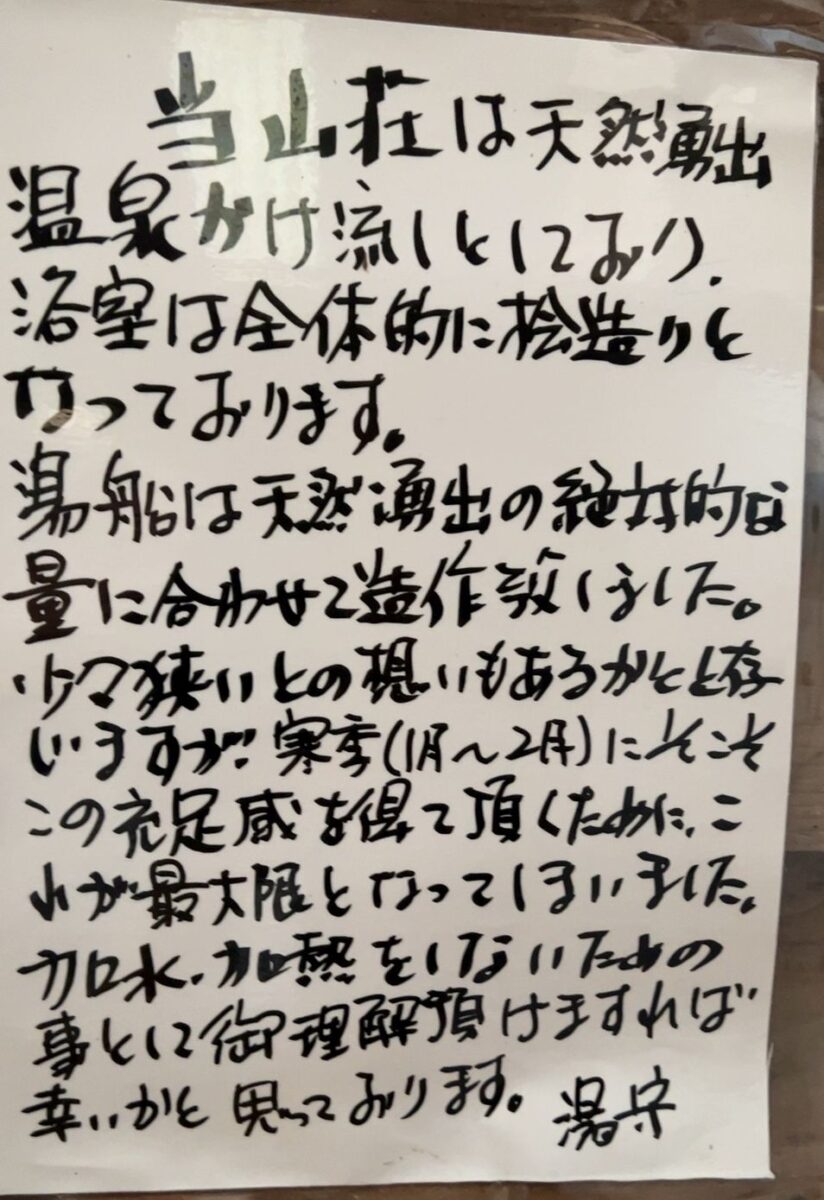 当山荘は天然湧出
温泉かけ流しとしており、
浴室は全体的に桧造りと
なっております。
湯船は天然湧出の絶対的な
量に合わせて造作致しました。
少々狭いとの想いもあるかと存
いますが、寒季(1月～2月)にこそ
この充足感を得て頂くために、こ
れが最大限となってしまいました。
加水、加熱をしないための
事として御理解頂けますれば
幸いかと思っております。湯守